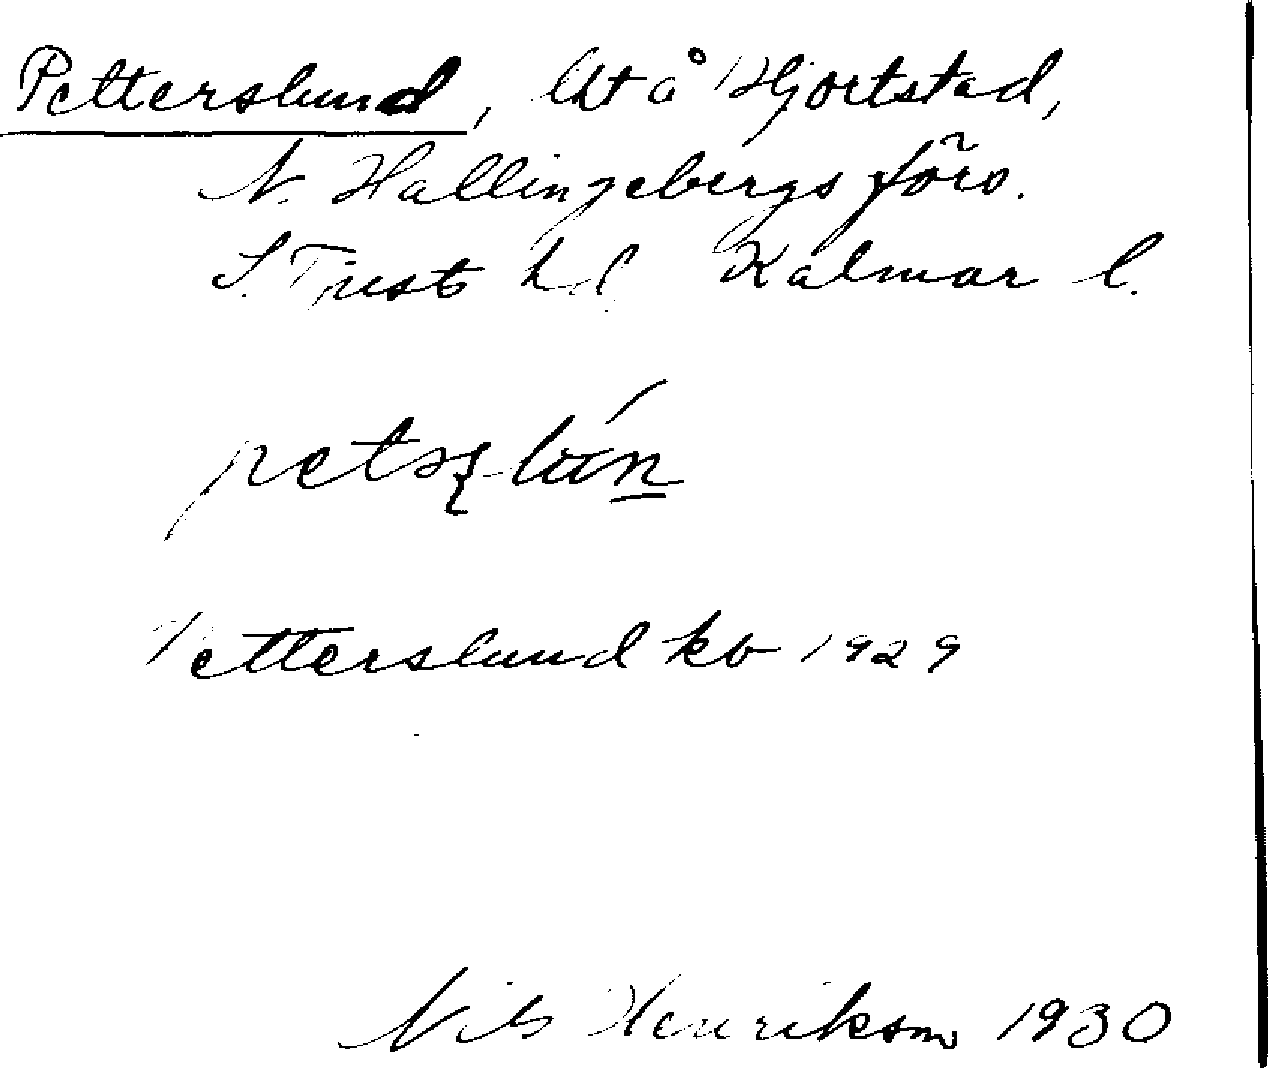 Petterslund, lht å Hjortstad,
N. Hallingebergs förs.
S. Tjust hd, Kalmar l.
Petterslund kb 1929
Nils Henrikson 1930